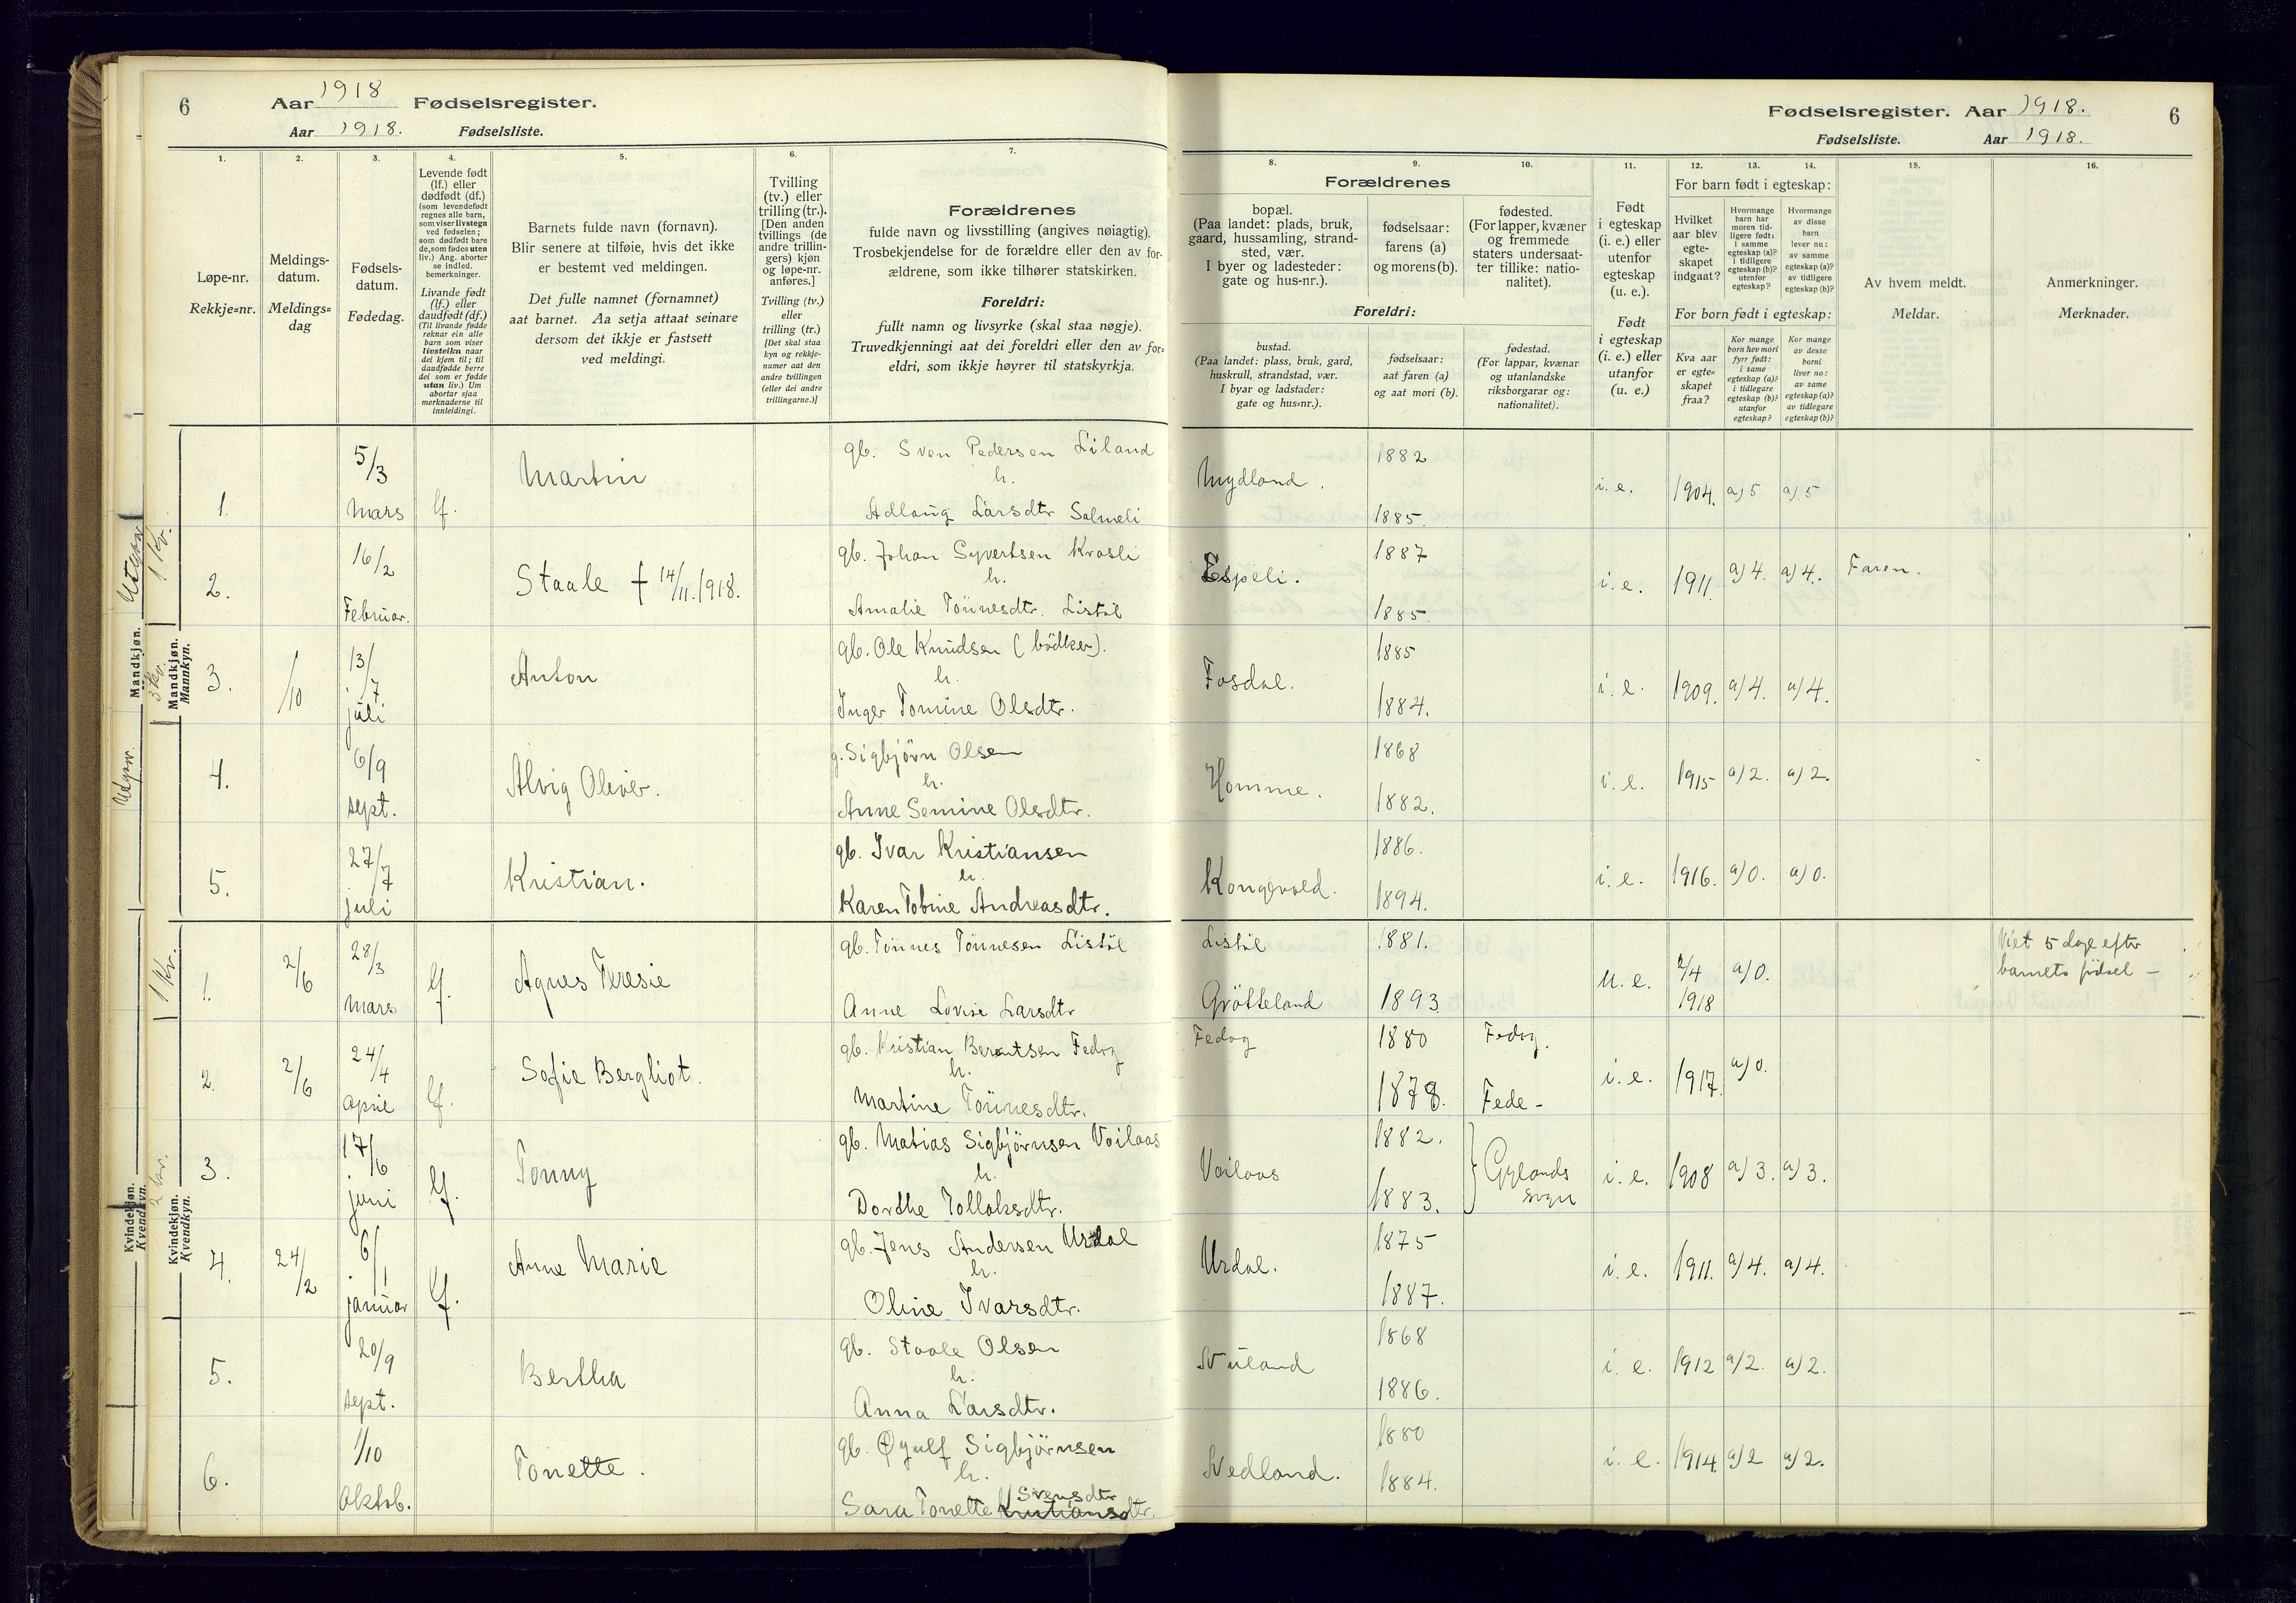 6
Aar 1918 Fødselsregister.
Aar 1918. Fødselsliste.
1.
2.
3.
4.
5.
6.
7.
Løpe-nr.
Rekkje=nr.
Meldings-
datum.
Meldings=
dag
Fødsels-
datum.
Fødedag.
Levende født
(lf.) eller
dødfødt (df.)
(som levendefødt
regnes alle barn,
som viser livstegn
ved fødselen;
som dødfødt bare
de, som fødes uten
liv.) Ang. aborter
se indled.
bemerkninger.
Livande født
(lf.) eller
daudfødt (df.)
(Til livande fødde
reknar ein alle
barn som viser
livsteikn naar
dei kjem til; til
daudfødde berre
dei som er fødde
utan liv.) Um
abortar sjaa
merknaderne til
innleidingi.
Barnets fulde navn (fornavn).
Blir senere at tilføie, hvis det ikke
er bestemt ved meldingen.
Det fulle namnet (fornamnet)
aat barnet. Aa setja attaat seinare
dersom det ikkje er fastsett
ved meldingi.
Tvilling
(tv.) eller
trilling (tr.).
[Den anden
tvillings (de
andre trillin-
gers) kjøn
og løpe-nr.
anføres.]
Tvilling (tv.)
eller
trilling (tr.)
[Det skal staa
kyn og rekkje-
numer aat den
andre tvillingen
(eller dei andre
trillingarne.)]
Forældrenes
fulde navn og livsstilling (angives nøiagtig).
Trosbekjendelse for de forældre eller den av for-
ældrene, som ikke tilhører statskirken.
Foreldri:
fullt namn og livsyrke (skal staa nøgje).
Truvedkjenningi aat dei foreldri eller den av for=
eldri, som ikkje høyrer til statskyrkja.
Fødselsregister. Aar 1918. 6
Fødselsliste. Aar 1918.
8.
9.
10.
11.
12.
13.
14.
15.
16.
Forældrenes
bopæl.
(Paa landet: plads, bruk,
gaard, hussamling, strand-
sted, vær.
I byer og ladesteder:
gate og hus-nr.).
fødselsaar:
farens (a)
og morens (b).
fødested.
(For lapper, kvæner
og fremmede
staters undersaat-
ter tillike: natio-
nalitet).
Foreldri:
bustad.
(Paa landet: plass, bruk, gard,
huskrull, strandstad, vær.
I byar og ladstader:
gate og hus=nr.).
fødselsaar:
aat faren (a)
og aat mori (b).
fødestad.
(For lappar, kvænar
og utanlandske
riksborgarar og:
nationalitet).
Født
i egteskap
(i. e.) eller
utenfor
egteskap
(u. e.).
Født
i egteskap
(i. e.) eller
utanfor
(u. e.)
For barn født i egteskap:
Hvilket
aar blev
egte-
skapet
indgaat?
Hvormange
barn har
moren tid-
ligere født:
i samme
egteskap (a)?
i tidligere
egteskap (b)?
utenfor
egteskap?
Hvormange
av disse
barn
lever nu:
av samme
egteskap (a)?
av tidligere
egteskap (b)?
For born født i egteskap:
Kva aar
er egte=
skapet
fraa?
Kor mange
born hev mori
fyrr født:
i same
egteskap (a)?
i tidlegare
egteskap (b)?
utanfor
egteskap?
Kor mange
av desse
borni
liver no:
av same
egteskap (a)?
av tidlegare
egteskap (b)?
Av hvem meldt.
Meldar.
Anmerkninger.
Merknader.
Mandkjøn.
Mannkyn.
1. 5/3 Mars lf. Martin
gb. Sven Pedersen Liland
h.
Adlaug Larsdtr Solmeli
Mydland. 1882 1885. i. e. 1904. a) 5 a) 5
2. 16/2 Februar. Staale † 14/11. 1918.
gb. Johan Syvertsen Krosli
h.
Amalie Tönnesdtr. Listöl
Espeli. 1887 1885. i. e. 1911. a) 4. a) 4. Faren.
3. /10 13/7 juli Anton
gb. Ole Knudsen (bödker).
h.
Inger Tomine Olsdtr.
Fosdal. 1885 1884. i. e. 1909. a) 4. a) 4.
4. 6/9 sept. Alvig Oliver.
g. Sigbjörn Olsen
h.
Anne Semine Olsdtr.
Homme. 1868 1882. i. e. 1915 a) 2. a) 2.
5. 27/7 juli Kristian.
gb. Ivar Kristiansen
h.
Karen Tobine Andreasdtr.
Kongevold. 1886. 1894. i. e. 1916. a) 0. a) 0.
Kvindekjøn.
Kvendkyn.
1. 2/6 28/3 Mars lf. Agnes Teresie
gb. Tönnes Tönnesen Listöl
Anne Lovise Larsdtr
Listöl 1881.
Grötteland 1893. u. e. 2/4 1918 a) 0.
Viet 5 dage efter
barnets födsel –
2. 2/6 24/4 April lf. Sofie Bergliot.
gb. Kristian Berntsen Fedog
h.
Martine Tönnesdtr.
Fedog 1880 Fedog.
1878. Fede – i. e. 1917. a) 0.
3. 17/6 juni lf. Tonny
gb. Matias Sigbjörnsen Voilaas
h.
Dorthe Tollaksdtr.
Voilaas 1882. 1883. Gylands sogn i. e. 1908 a) 3. a) 3.
4. 24/2 6/1 januar lf. Anne Marie
gb. Jens Andersen Urdal
h.
Oline Ivarsdtr.
Urdal. 1875 1887. i. e. 1911. a) 4. a) 4.
5. 20/9 sept. Bertha
gb. Staale Olsen
h.
Anna Larsdtr.
Nuland 1868 1886. i. e. 1912 a) 2. a) 2.
6. 1/10 Oktob. Tonette.
gb. Øyulf Sigbjörnsen
h.
Svensdtr
Sara Tonette Kristiansdtr.
Nedland. 1880 1884. i. e. 1914. a) 2 a) 2.